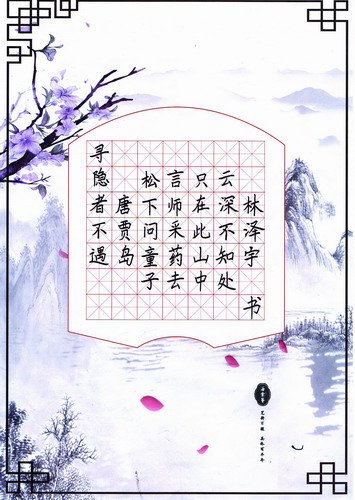 寻隐者不遇
唐贾岛
松下问童子
言师采药去
只在此山中
云深不知处
林泽宇 书